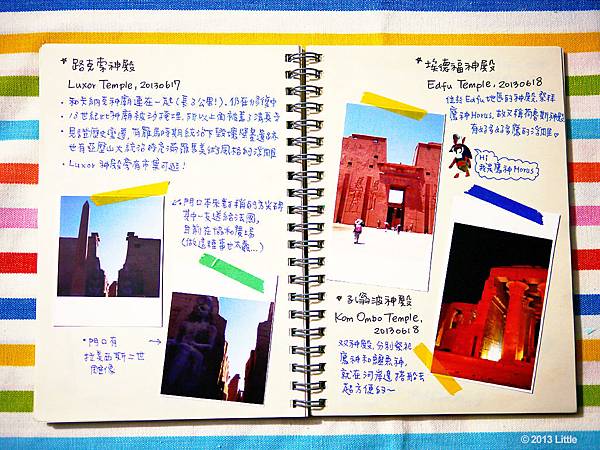 * 路克索神殿
Luxor Temple, 20130617
• 和卡納克神廟連在一起(長3公里!), 仍在修復中
• 13世紀時神廟被沙掩埋, 所以上面被蓋了清真寺
見證歷史變遷, 有羅馬時期統治下毀壞壁畫
也有亞歷山大統治時充滿羅馬美術風格的浮雕
• Luxor 神殿旁有市集可逛!
門口本來有2指的方尖碑
其中一支送給法國,
目前在協和廣場
(做這種事也太蠢...)
• 門口有 →
拉美西斯二世
雕像
* 埃德福神殿
Edfu Temple, 20130618
位於Edfu地區的神殿, 祭拜
鷹神Horus, 故又稱荷魯斯神殿
有好多好多鷹的浮雕
Hi
我是鷹神Horus
* 孔翁波神殿
Kom Ombo Temple,
20130618
双神殿, 分別祭祀
鷹神和鱷魚神,
就在河岸邊 搭船去
超方便的~
© 2013 Little